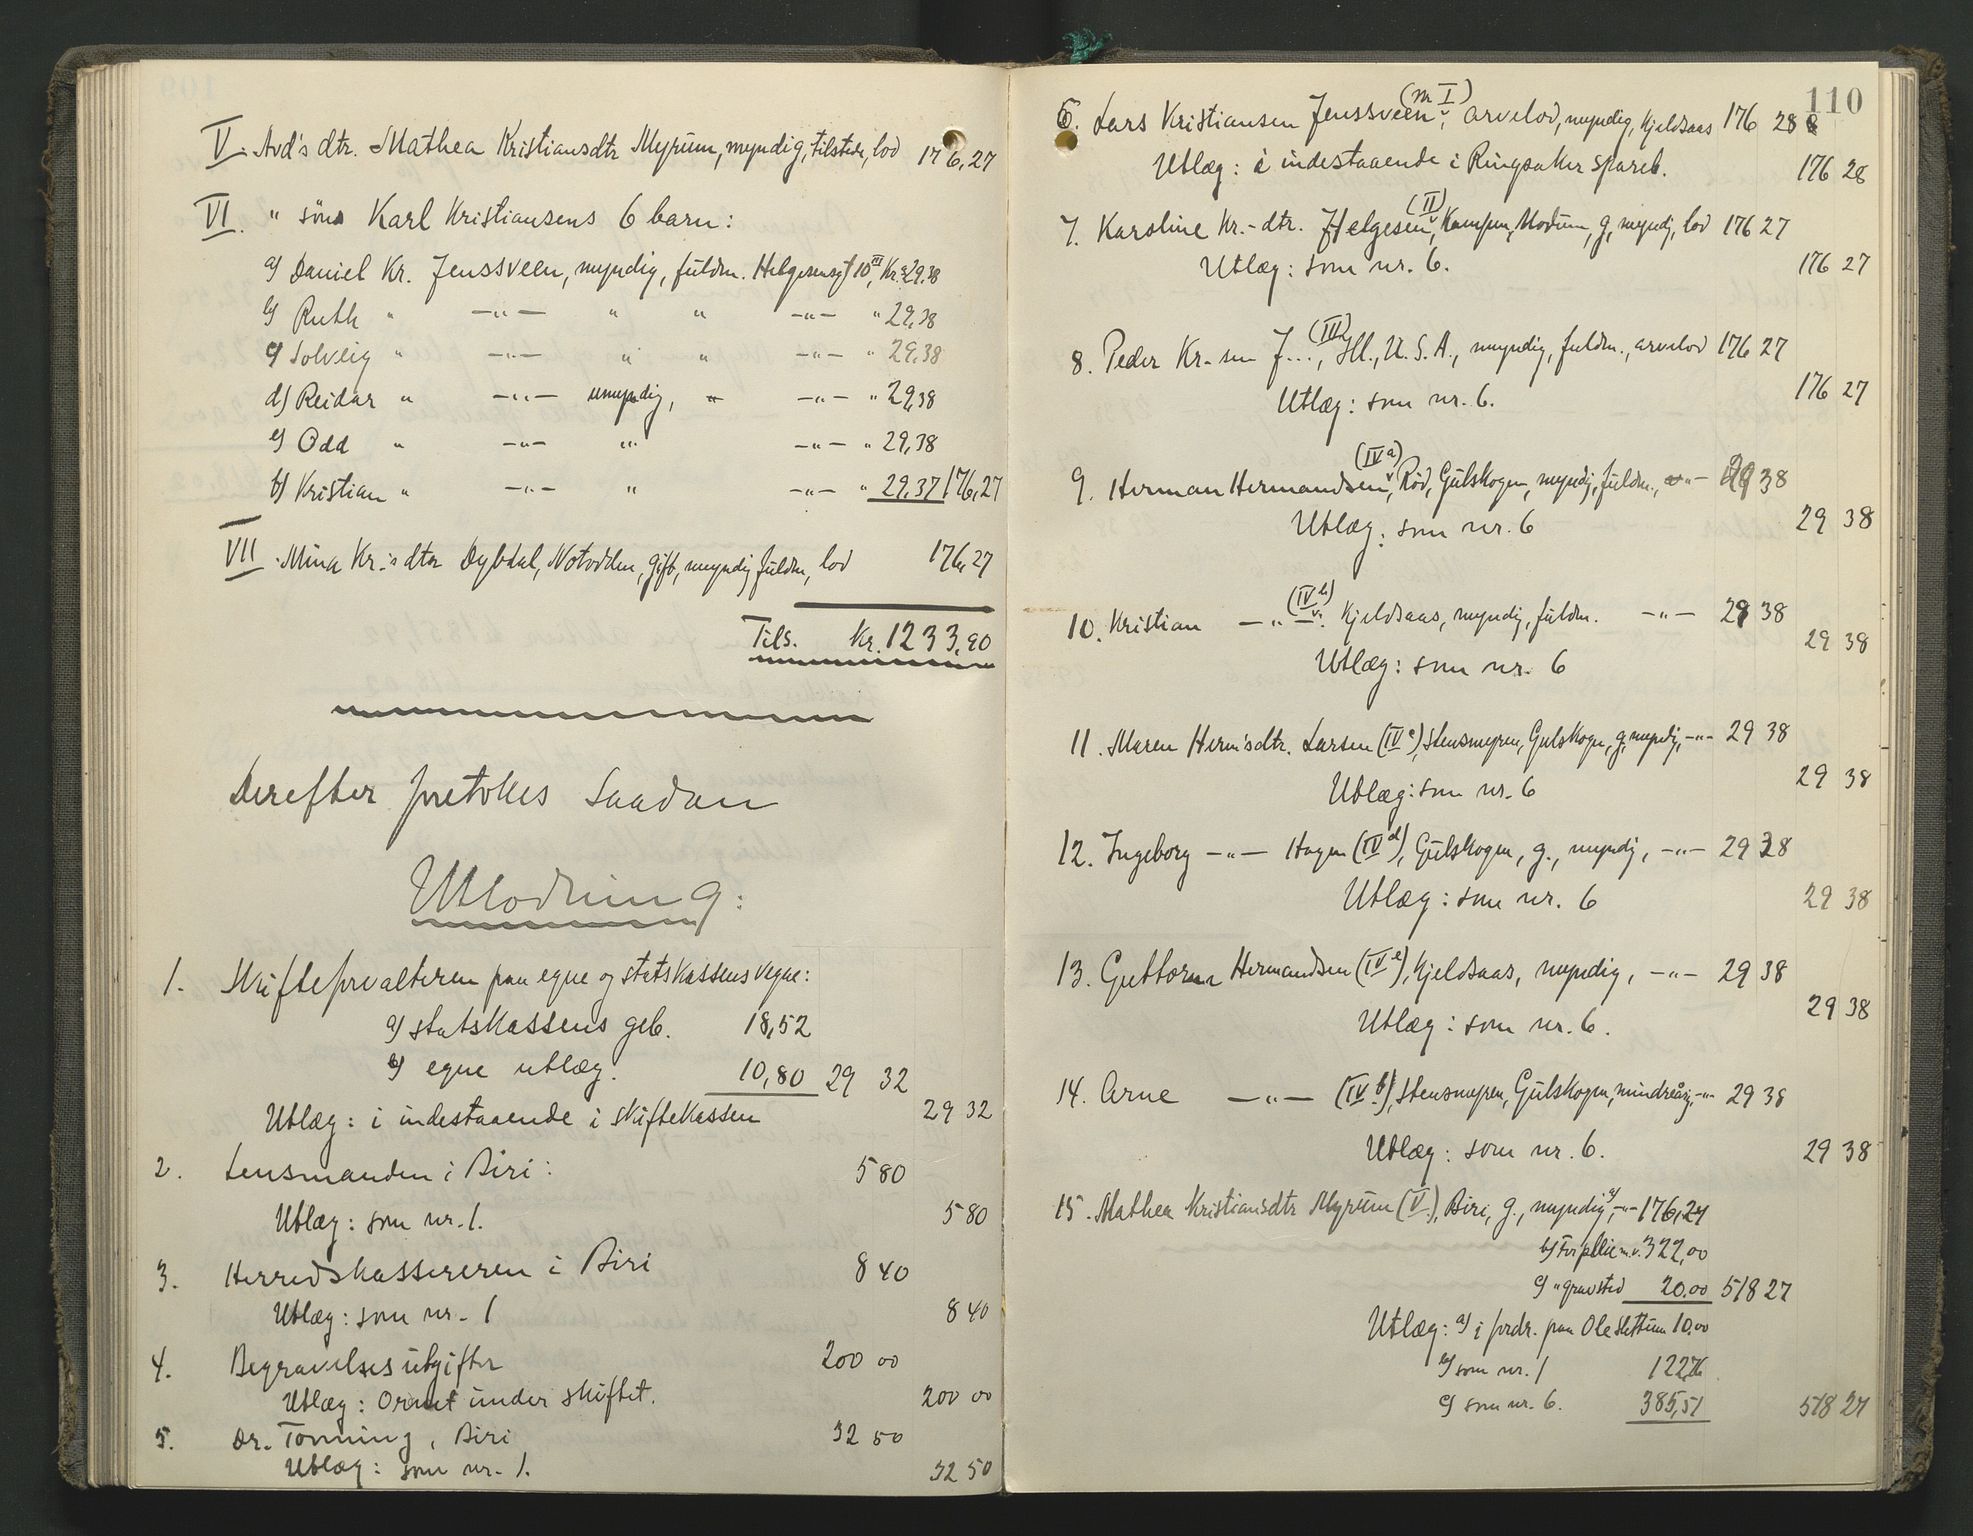 V. Avd's dtr. Mathea Kristiansdtr Myrum, myndig, tilstede, lod 176,27
VI. " søns Karl Kristiansens 6 barn:
a) Daniel Kr. Jenssveen, myndig, fuldm. Helgesens 10/, Kr. 29.38
b) Ruth " —"— " " —"— " 29,38
c) Solveig " —"— " " —"— " 29,38
d) Reidar " —"— umyndig, " —"— " 29,38
e) Odd " —"— " —"— " 29,38
f) Kristian " —"— " —"— " 29,37 176,27
VII. Mina Kr.'s dtr Dybdal, Notodden, gift, myndig fuldm, lod 176,27
Tils. Kr. 1233,90
Derefter foretokes saadan
Utlodning:
1. Skifteforvalteren paa egne og statskassens vegne:
a) statskassens geb. 18,52
b) egne utlæg. 10,80 29 32
Utlæg: i indestaaende i skiftekassen 29 32
2. Lensmanden i Biri: 5 80
Utlæg: som nr. 1. 5 80
3. Herredskassereren i Biri 8 40
Utlæg: som nr. 1 8 40
4. Begravelsesutgifter 200 00
Utlæg: Ornet under skiftet. 200 00
5. Dr. Tonning, Biri 32 50
Utlæg: som nr. 1. 32 50
110
6. Lars Kristiansen Jenssveen (nr I), arvelod, myndig, Kjeldsaas 176 28
Utlæg: i indestaaende i Ringsaker spareb. 176 28
7. Karoline Kr.-dtr. Helgesen (II), Kampen, Modum, g, myndig, lod 176 27
Utlæg: som nr. 6. 176 27
8. Peder Kr.-sen J..., (III) Ill., U.S.A., myndig, fuldm., arvelod 176 27
Utlæg: som nr. 6. 176 27
9. Herman Hermandsen (IV a), Rød, Gulskogen, myndig, fuldm., —"— 29 38
Utlæg: som nr. 6 29 38
10. Kristian —"— (IV b) Kjeldsaas, myndig, fuldm. —"— 29 38
Utlæg: som nr. 6 29 38
11. Maren Herm'sdtr. Larsen (IV c), Stensmyren, Gulskogn, g, myndig, —"— 29 38
Utlæg: som nr. 6 29 38
12. Ingeborg —"— Hagen (IV d), Gulskogen, g., myndig, —"— 29 38
Utlæg: som nr. 6 29 38
13. Guttorm Hermandsen (IV e), Kjeldsaas, myndig, —"— 29 38
Utlæg: som nr. 6. 29 38
14. Arne —"— (IV f), Stensmyren, Gulskogen, mindreårig, —"— 29 38
Utlæg: som nr. 6. 29 38
15. Mathea Kristiansdtr Myrum (V), Biri, g., myndig, a) —"— 176,27
b) For pleie m.v. 322,00
c) " gravsted 20.00 518 27
Utlæg: a) i fordr. paa Ole Slettum 10.00
b) som nr. 1 122,76
c) som nr. 6. 385,51 518 27